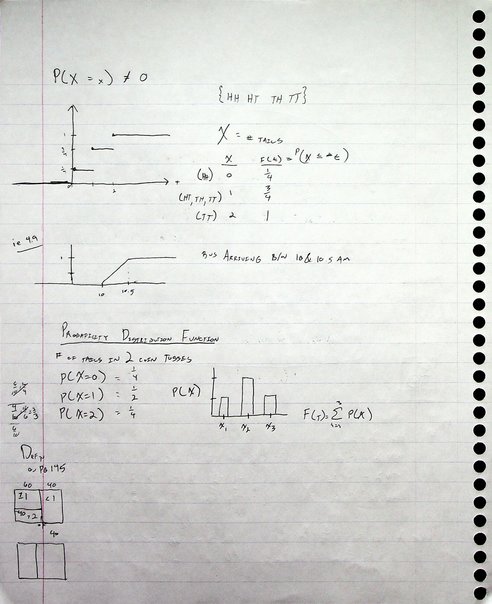 P(X = x) ≠ 0
{HH HT TH TT}
X = # TAILS
X F(t) = P(X ≤ t)
0 1/4
(HT, TH, TT) 1 3/4
(TT) 2 1
1
3/4
1/4
1 2 t
ie 4.9
BUS ARRIVING B/W 10 & 10.5 AM
1
10 10.5
PROBABILITY DISTRIBUTION FUNCTION
# OF TAILS IN 2 COIN TOSSES
P(X=0) = 1/4
P(X=1) = 1/2
P(X=2) = 1/4
P(X)
x1 x2 x3
P(X)
DEFN
ON PG 145
60 40
40